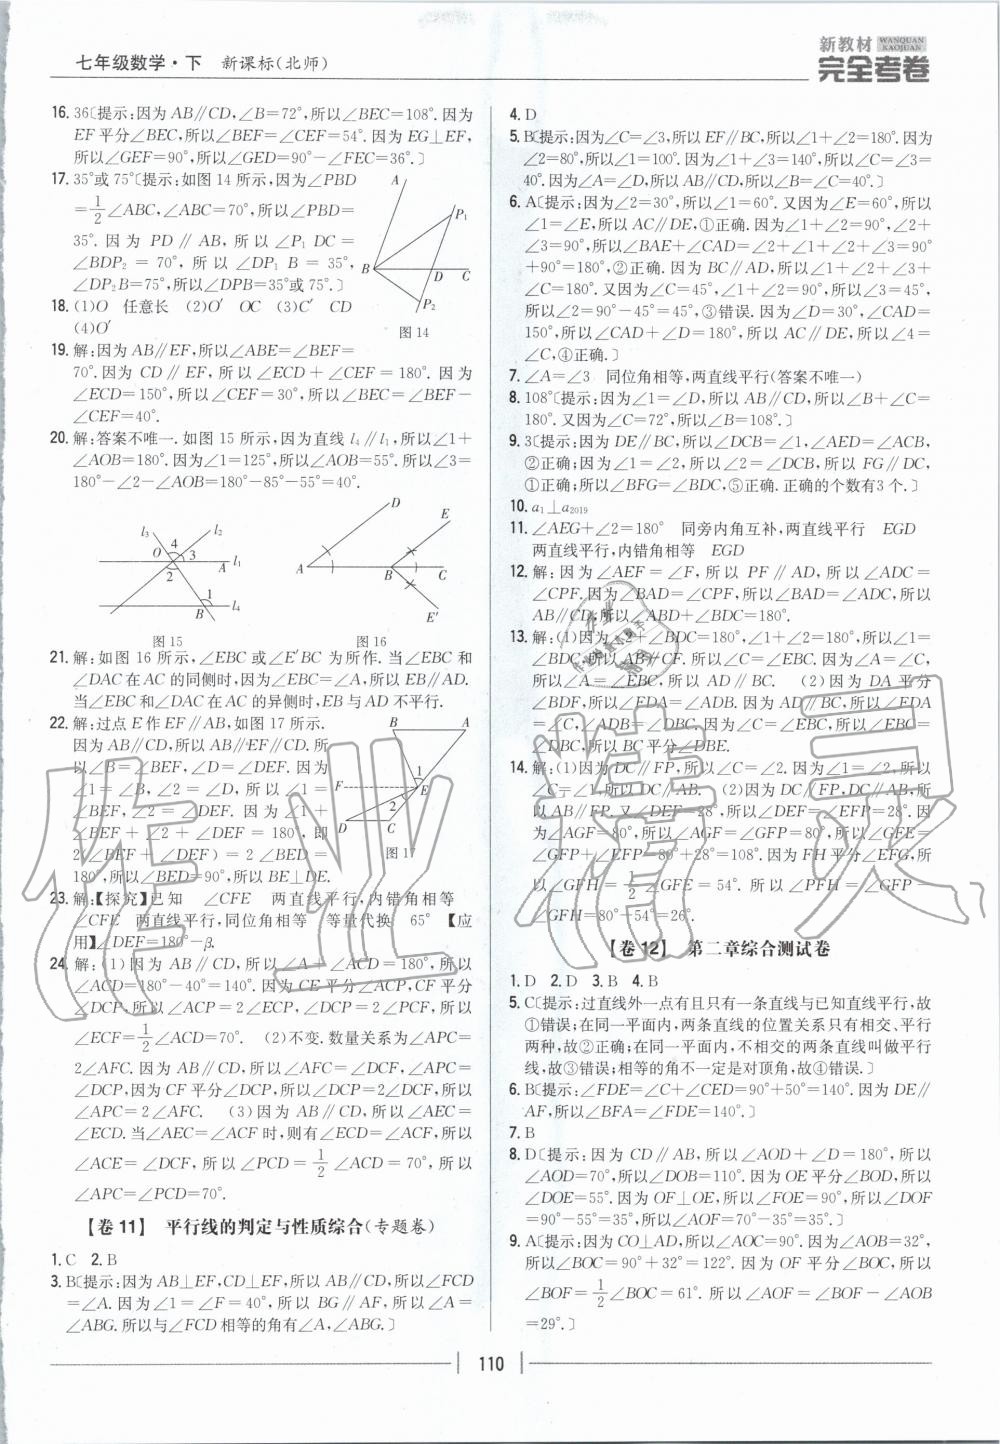 七年级数学·下 新课标(北师)
新教材 WANQUAN KAOJUAN
完全考卷
16. 36〔提示:因为AB∥CD,∠B=72°,所以∠BEC=108°. 因为
EF平分∠BEC,所以∠BEF=∠CEF=54°. 因为EG⊥EF,
所以∠GEF=90°,所以∠GED=90°-∠FEC=36°.〕
17. 35°或75°〔提示:如图14所示,因为∠PBD
=1/2∠ABC,∠ABC=70°,所以∠PBD=
35°. 因为PD∥AB,所以∠P₁DC=
∠BDP₂=70°,所以∠DP₁B=35°,
∠DP₂B=75°,所以∠DPB=35°或75°.〕
A P₁ B D C P₂
图14
18. (1)O 任意长 (2)O′ OC (3)C′ CD
(4)O′
19. 解:因为AB∥EF,所以∠ABE=∠BEF=
70°. 因为CD∥EF,所以∠ECD+∠CEF=180°. 因为
∠ECD=150°,所以∠CEF=30°,所以∠BEC=∠BEF-
∠CEF=40°.
20. 解:答案不唯一. 如图15所示,因为直线l₄∥l₁,所以∠1+
∠AOB=180°. 因为∠1=125°,所以∠AOB=55°. 所以∠3=
180°-∠2-∠AOB=180°-85°-55°=40°.
l₃ l₂ O 4 3 A l₁ 2 1 B l₄
图15
D E A B C E′
图16
21. 解:如图16所示,∠EBC或∠E′BC为所作. 当∠EBC和
∠DAC在AC的同侧时,因为∠EBC=∠A,所以EB∥AD.
当∠EBC和∠DAC在AC的异侧时,EB与AD不平行.
22. 解:过点E作EF∥AB,如图17所示.
因为AB∥CD,所以AB∥EF∥CD. 所
以∠B=∠BEF,∠D=∠DEF. 因为
∠1=∠B,∠2=∠D,所以∠1=
∠BEF,∠2=∠DEF. 因为∠1+
∠BEF+∠2+∠DEF=180°,即
2(∠BEF+∠DEF)=2∠BED=
180°,所以∠BED=90°,所以BE⊥DE.
B A F 1 E 2 D C
图17
23. 解:【探究】已知 ∠CFE 两直线平行,内错角相等
∠CFE 两直线平行,同位角相等 等量代换 65° 【应
用】∠DEF=180°-β.
24. 解:(1)因为AB∥CD,所以∠A+∠ACD=180°,所以
∠ACD=180°-40°=140°. 因为CE平分∠ACP,CF平分
∠DCP,所以∠ACP=2∠ECP,∠DCP=2∠PCF,所以
∠ECF=1/2∠ACD=70°. (2)不变. 数量关系为∠APC=
2∠AFC. 因为AB∥CD,所以∠AFC=∠DCF,∠APC=
∠DCP,因为CF平分∠DCP,所以∠DCP=2∠DCF,所以
∠APC=2∠AFC. (3)因为AB∥CD,所以∠AEC=
∠ECD. 当∠AEC=∠ACF时,则有∠ECD=∠ACF,所以
∠ACE=∠DCF,所以∠PCD=1/2∠ACD=70°,所以
∠APC=∠PCD=70°.
【卷11】 平行线的判定与性质综合(专题卷)
1. C 2. B
3. B〔提示:因为AB⊥EF,CD⊥EF,所以AB∥CD,所以∠FCD
=∠A. 因为∠1=∠F=40°,所以BG∥AF,所以∠A=
∠ABG. 所以与∠FCD相等的角有∠A,∠ABG.〕
4. D
5. B〔提示:因为∠C=∠3,所以EF∥BC,所以∠1+∠2=180°. 因为
∠2=80°,所以∠1=100°. 因为∠1+∠3=140°,所以∠C=∠3=
40°. 因为∠A=∠D,所以AB∥CD,所以∠B=∠C=40°.〕
6. A〔提示:因为∠2=30°,所以∠1=60°. 又因为∠E=60°,所以
∠1=∠E,所以AC∥DE,①正确. 因为∠1+∠2=90°,∠2+
∠3=90°,所以∠BAE+∠CAD=∠2+∠1+∠2+∠3=90°
+90°=180°,②正确. 因为BC∥AD,所以∠1+∠2+∠3+
∠C=180°. 又因为∠C=45°,∠1+∠2=90°,所以∠3=45°,
所以∠2=90°-45°=45°,③错误. 因为∠D=30°,∠CAD=
150°,所以∠CAD+∠D=180°,所以AC∥DE,所以∠4=
∠C,④正确.〕
7. ∠A=∠3 同位角相等,两直线平行(答案不唯一)
8. 108°〔提示:因为∠1=∠D,所以AB∥CD,所以∠B+∠C=
180°. 又因为∠C=72°,所以∠B=108°.〕
9. 3〔提示:因为DE∥BC,所以∠DCB=∠1,∠AED=∠ACB,
②正确;因为∠1=∠2,所以∠2=∠DCB,所以FG∥DC,
①正确;所以∠BFG=∠BDC,⑤正确. 正确的个数有3个.〕
10. a₁⊥a₂₀₁₉
11. ∠AEG+∠2=180° 同旁内角互补,两直线平行 EGD
两直线平行,内错角相等 EGD
12. 解:因为∠AEF=∠F,所以PF∥AD,所以∠ADC=
∠CPF. 因为∠BAD=∠CPF,所以∠BAD=∠ADC,所以
AB∥CD,所以∠ABD+∠BDC=180°.
13. 解:(1)因为∠2+∠BDC=180°,∠1+∠2=180°,所以∠1=
∠BDC,所以AB∥CF. 所以∠C=∠EBC. 因为∠A=∠C,
所以∠A=∠EBC,所以AD∥BC. (2)因为DA平分
∠BDF,所以∠FDA=∠ADB. 因为AD∥BC,所以∠FDA
=∠C,∠ADB=∠DBC. 因为∠C=∠EBC,所以∠EBC=
∠DBC,所以BC平分∠DBE.
14. 解:(1)因为DC∥FP,所以∠C=∠2. 因为∠1=∠2,所以
∠C=∠1,所以DC∥AB. (2)因为DC∥FP,DC∥AB,所
以AB∥FP. 又∠DEF=28°,所以∠DEF=∠EFP=28°. 因
为∠AGF=80°,所以∠AGF=∠GFP=80°,所以∠GFE=
∠GFP+∠EFP=80°+28°=108°. 因为FH平分∠EFG,所
以∠GFH=1/2∠GFE=54°. 所以∠PFH=∠GFP-
∠GFH=80°-54°=26°.
【卷12】 第二章综合测试卷
1. D 2. D 3. B 4. B
5. C〔提示:过直线外一点有且只有一条直线与已知直线平行,故
①错误;在同一平面内,两条直线的位置关系只有相交、平行
两种,故②正确;在同一平面内,不相交的两条直线叫做平行
线,故③错误;相等的角不一定是对顶角,故④错误.〕
6. B〔提示:∠FDE=∠C+∠CED=90°+50°=140°. 因为DE∥
AF,所以∠BFA=∠FDE=140°.〕
7. B
8. D〔提示:因为CD∥AB,所以∠AOD+∠D=180°,所以
∠AOD=70°,所以∠DOB=110°. 因为OE平分∠BOD,所以
∠DOE=55°. 因为OF⊥OE,所以∠FOE=90°,所以∠DOF
=90°-55°=35°,所以∠AOF=70°-35°=35°.〕
9. A〔提示:因为CO⊥AD,所以∠AOC=90°. 因为∠AOB=32°,
所以∠BOC=90°+32°=122°. 因为OF平分∠BOC,所以
∠BOF=1/2∠BOC=61°. 所以∠AOF=∠BOF-∠AOB
=29°.〕
110
作业精灵